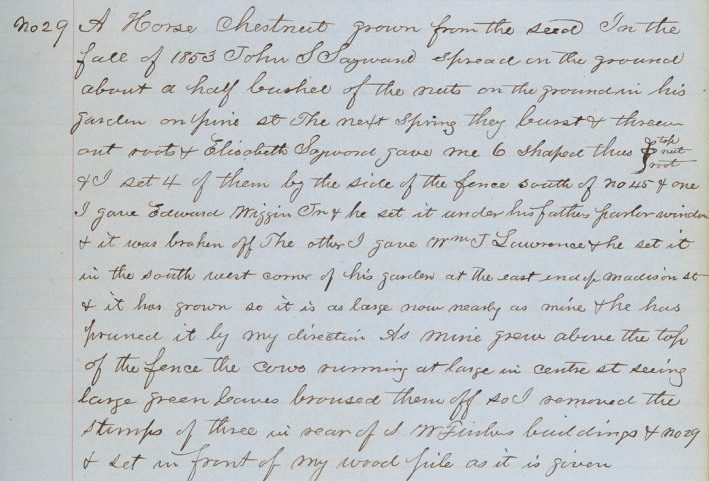 No 29 A Horse Chestnut grown from the seed In the
fall of 1853 John S Sayward spread on the ground
about a half bushel of the nuts on the ground in his
garden on pine st The next Spring they burst & threw
out roots & Elisabeth Sayword gave me 6 shaped thus top
nut
root
& I set 4 of them by the side of the fence south of no 45 & one
I gave Edward Wiggin Jr & he set it under his fathers parlor window
& it was broken off The other I gave Wm J Lawrence & he set it
in the south west corner of his garden at the east end of madison st
& it has grown so it is as large now nearly as mine & he has
pruned it by my direction As mine grew above the top
of the fence the cows running at large in centre st seeing
large green leaves broused them off so I removed the
stumps of three in rear of J W buildings & no 29
& set in front of my wood pile as it is given